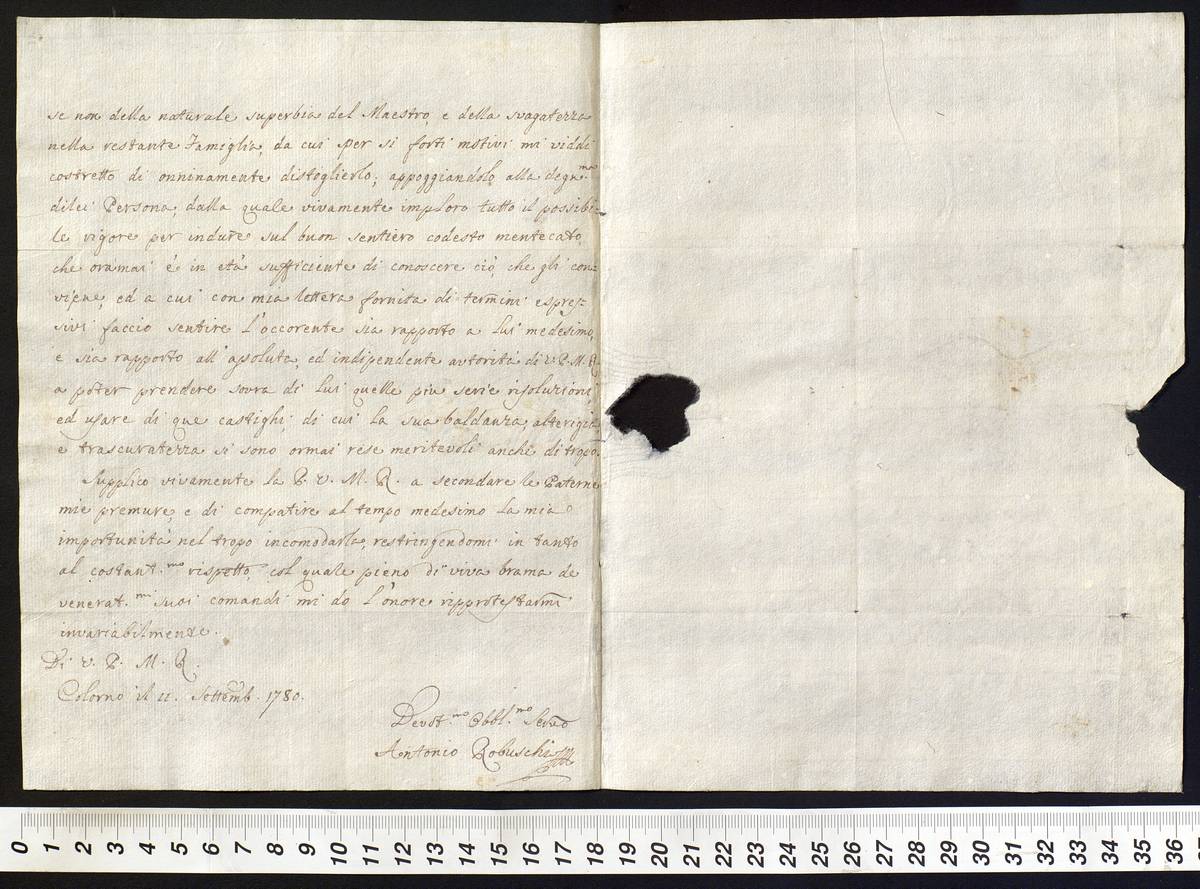 se non della naturale superbia del Maestro, e della svagatezza
nella restante Famiglia, da cui per si forti motivi mi viddi
costretto di onninamente distoglierlo, appoggiandolo alla degn.ma
dilei Persona, dalla quale vivamente imploro tutto il possibi-
le vigore per indure sul buon sentiero codesto mentecato,
che oramai é in etá sufficiente di conoscere ció, che gli con=
viene, ed a cui con mia lettera fornita di termini espres-
sivi faccio sentire l'occorente sia rapporto a lui medesimo,
e sia rapporto all'assoluta, ed indipendente autoritá di V. P. M. R.
a poter prendere sovra di lui quelle piu serie risoluzioni,
ed usare di que castighi, di cui la sua baldanza, alterigia
e trascuratezza si sono ormai rese meritevoli anche di tropo.
Supplico vivamente la P. V. M. R. a secondare le Paterne
mie premure, e di compatire al tempo medesimo la mia
importunitá nel tropo incomodarla, restringendomi in tanto
al costant.mo rispetto, col quale pieno di viva brama de
venerat.mi suoi comandi mi do l'onore ripprotestarmi
invariabilmente.
Di V. P. M. R.
Colorno il 11. Settemb. 1780.
Devot.mo Obbl.mo Servo
Antonio Robuschi
0 1 2 3 4 5 6 7 8 9 10 11 12 13 14 15 16 17 18 19 20 21 22 23 24 25 26 27 28 29 30 31 32 33 34 35 36